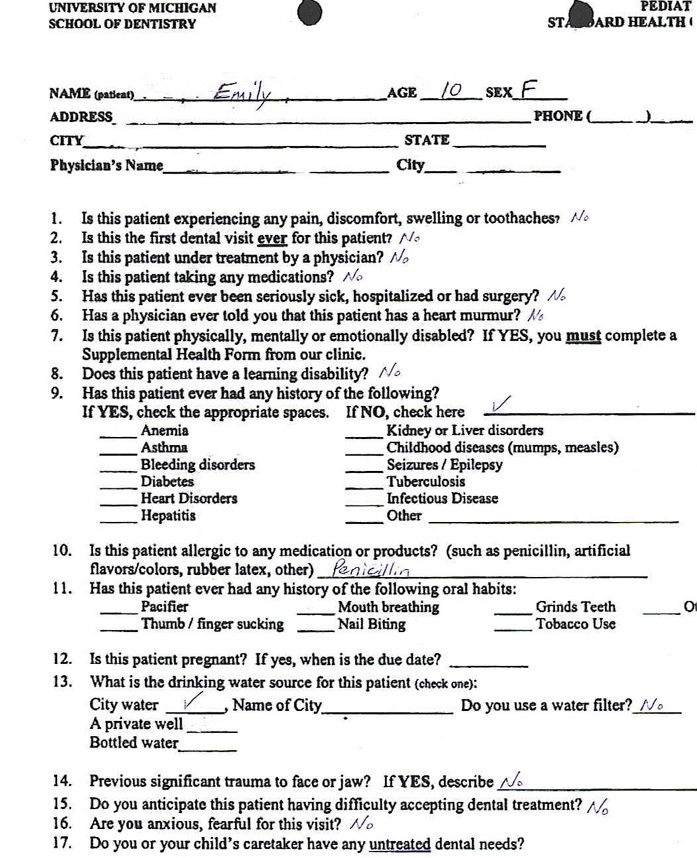 UNIVERSITY OF MICHIGAN
SCHOOL OF DENTISTRY
PEDIAT
ST ARD HEALTH
NAME (patient) Emily AGE 10 SEX F
ADDRESS PHONE ( )
CITY STATE
Physician's Name City
1. Is this patient experiencing any pain, discomfort, swelling or toothaches? No
2. Is this the first dental visit ever for this patient? No
3. Is this patient under treatment by a physician? No
4. Is this patient taking any medications? No
5. Has this patient ever been seriously sick, hospitalized or had surgery? No
6. Has a physician ever told you that this patient has a heart murmur? No
7. Is this patient physically, mentally or emotionally disabled? If YES, you must complete a
Supplemental Health Form from our clinic.
8. Does this patient have a learning disability? No
9. Has this patient ever had any history of the following?
If YES, check the appropriate spaces. If NO, check here ✓
Anemia Kidney or Liver disorders
Asthma Childhood diseases (mumps, measles)
Bleeding disorders Seizures / Epilepsy
Diabetes Tuberculosis
Heart Disorders Infectious Disease
Hepatitis Other
10. Is this patient allergic to any medication or products? (such as penicillin, artificial
flavors/colors, rubber latex, other) Penicillin
11. Has this patient ever had any history of the following oral habits:
Pacifier Mouth breathing Grinds Teeth
Thumb / finger sucking Nail Biting Tobacco Use
12. Is this patient pregnant? If yes, when is the due date?
13. What is the drinking water source for this patient (check one):
City water ✓, Name of City Do you use a water filter? No
A private well
Bottled water
14. Previous significant trauma to face or jaw? If YES, describe No
15. Do you anticipate this patient having difficulty accepting dental treatment? No
16. Are you anxious, fearful for this visit? No
17. Do you or your child's caretaker have any untreated dental needs?